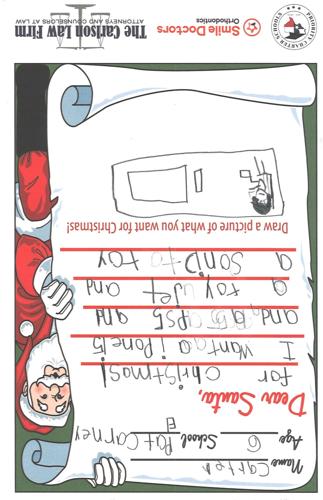 Name Carter
Age 6 School Pat Carney
E
Dear Santa,
for christmas!
I want a i pone 15
and a ps5 and
a toy jet and
a toy
Draw a picture of what you want for Christmas!
PRIORITY CHARTER SCHOOLS
Smile Doctors
Orthodontics
The Carlson Law Firm
ATTORNEYS AND COUNSELORS AT LAW